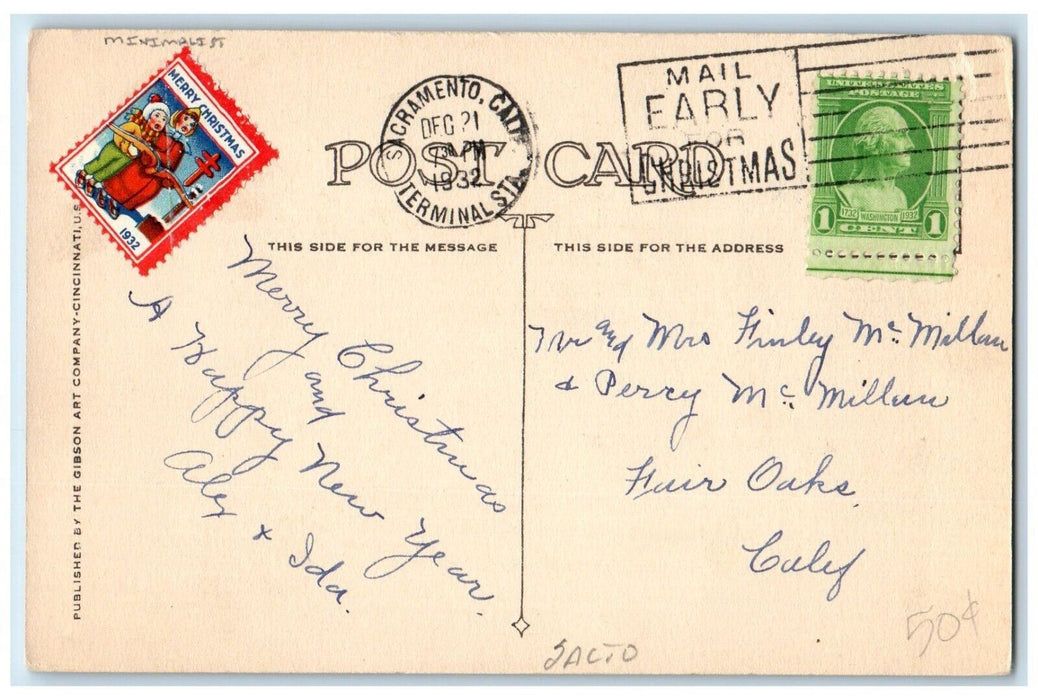 MINIMALIST
MERRY CHRISTMAS
1932
SACRAMENTO, CALIF.
DEC 21
PM
1932
TERMINAL STA.
MAIL
EARLY
FOR
CHRISTMAS
UNITED STATES
POSTAGE
1732 WASHINGTON 1932
1 CENT 1
POST CARD
THIS SIDE FOR THE MESSAGE
THIS SIDE FOR THE ADDRESS
PUBLISHED BY THE GIBSON ART COMPANY-CINCINNATI, U.S.
Merry Christmas
and
A Happy New Year.
Aley & Ida.
Mr and Mrs Finley McMillan
& Perry McMillan
Fair Oaks
Calif
50¢
SACTO